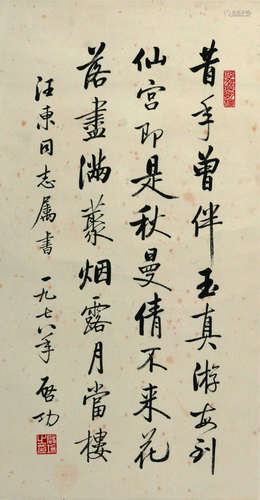 昔年曾伴玉真游每到
仙宫即是秋曼倩不来花
落尽满丛烟露月當樓
汪東同志属書 一九七八年 啓功